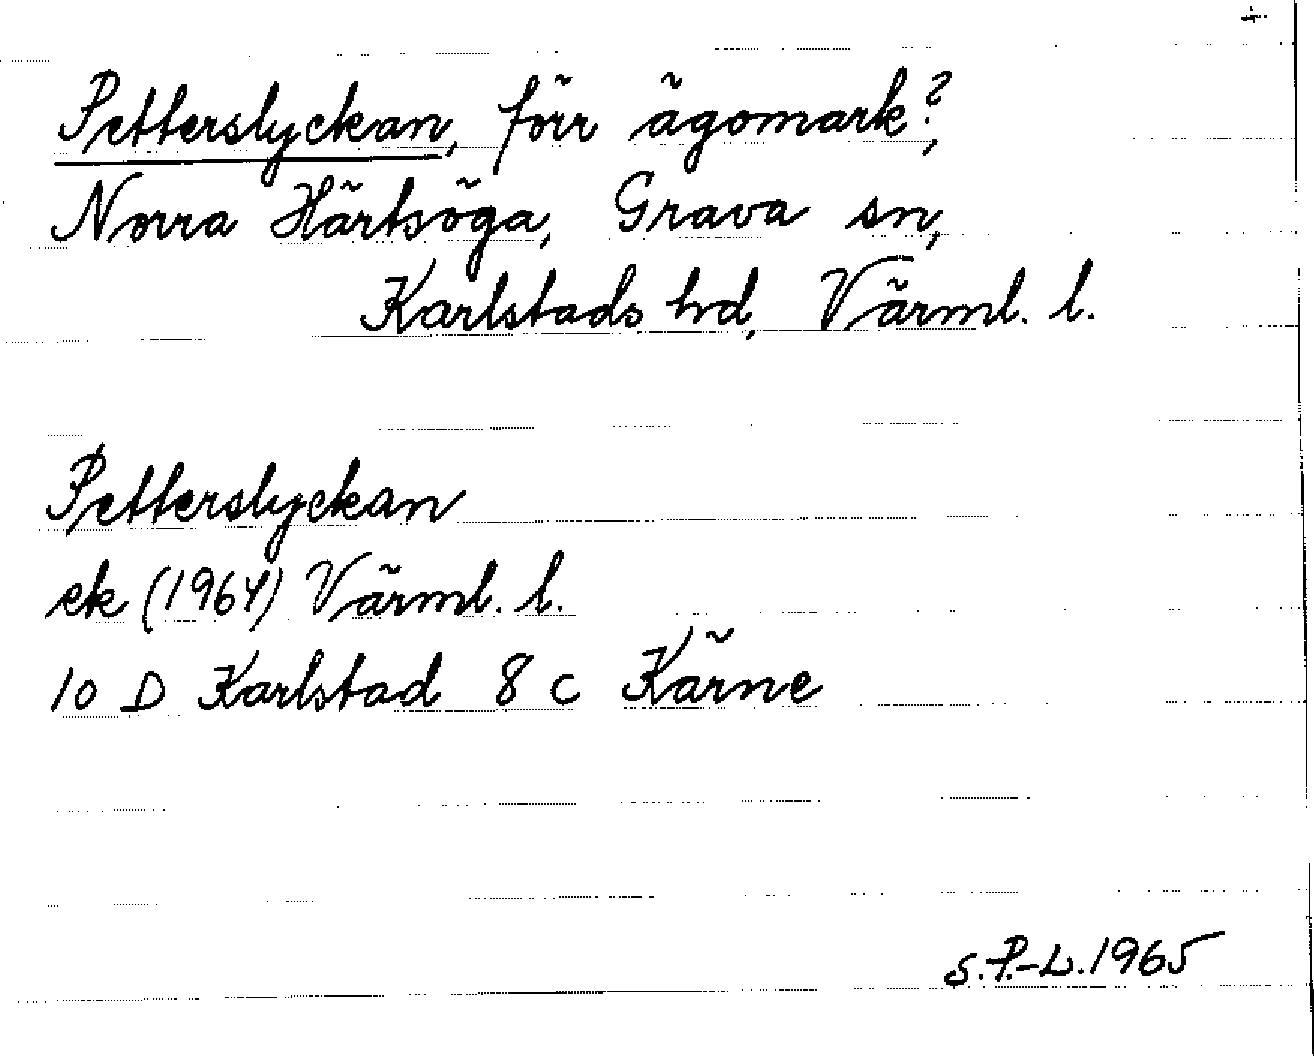 Petterslyckan, förr ägomark?,
Norra Härtsöga, Grava sn,
Karlstads hd, Värml. l.
Petterslyckan
ek (1964) Värml. l.
10 D Karlstad 8 c Kärne
S.P.-L. 1965